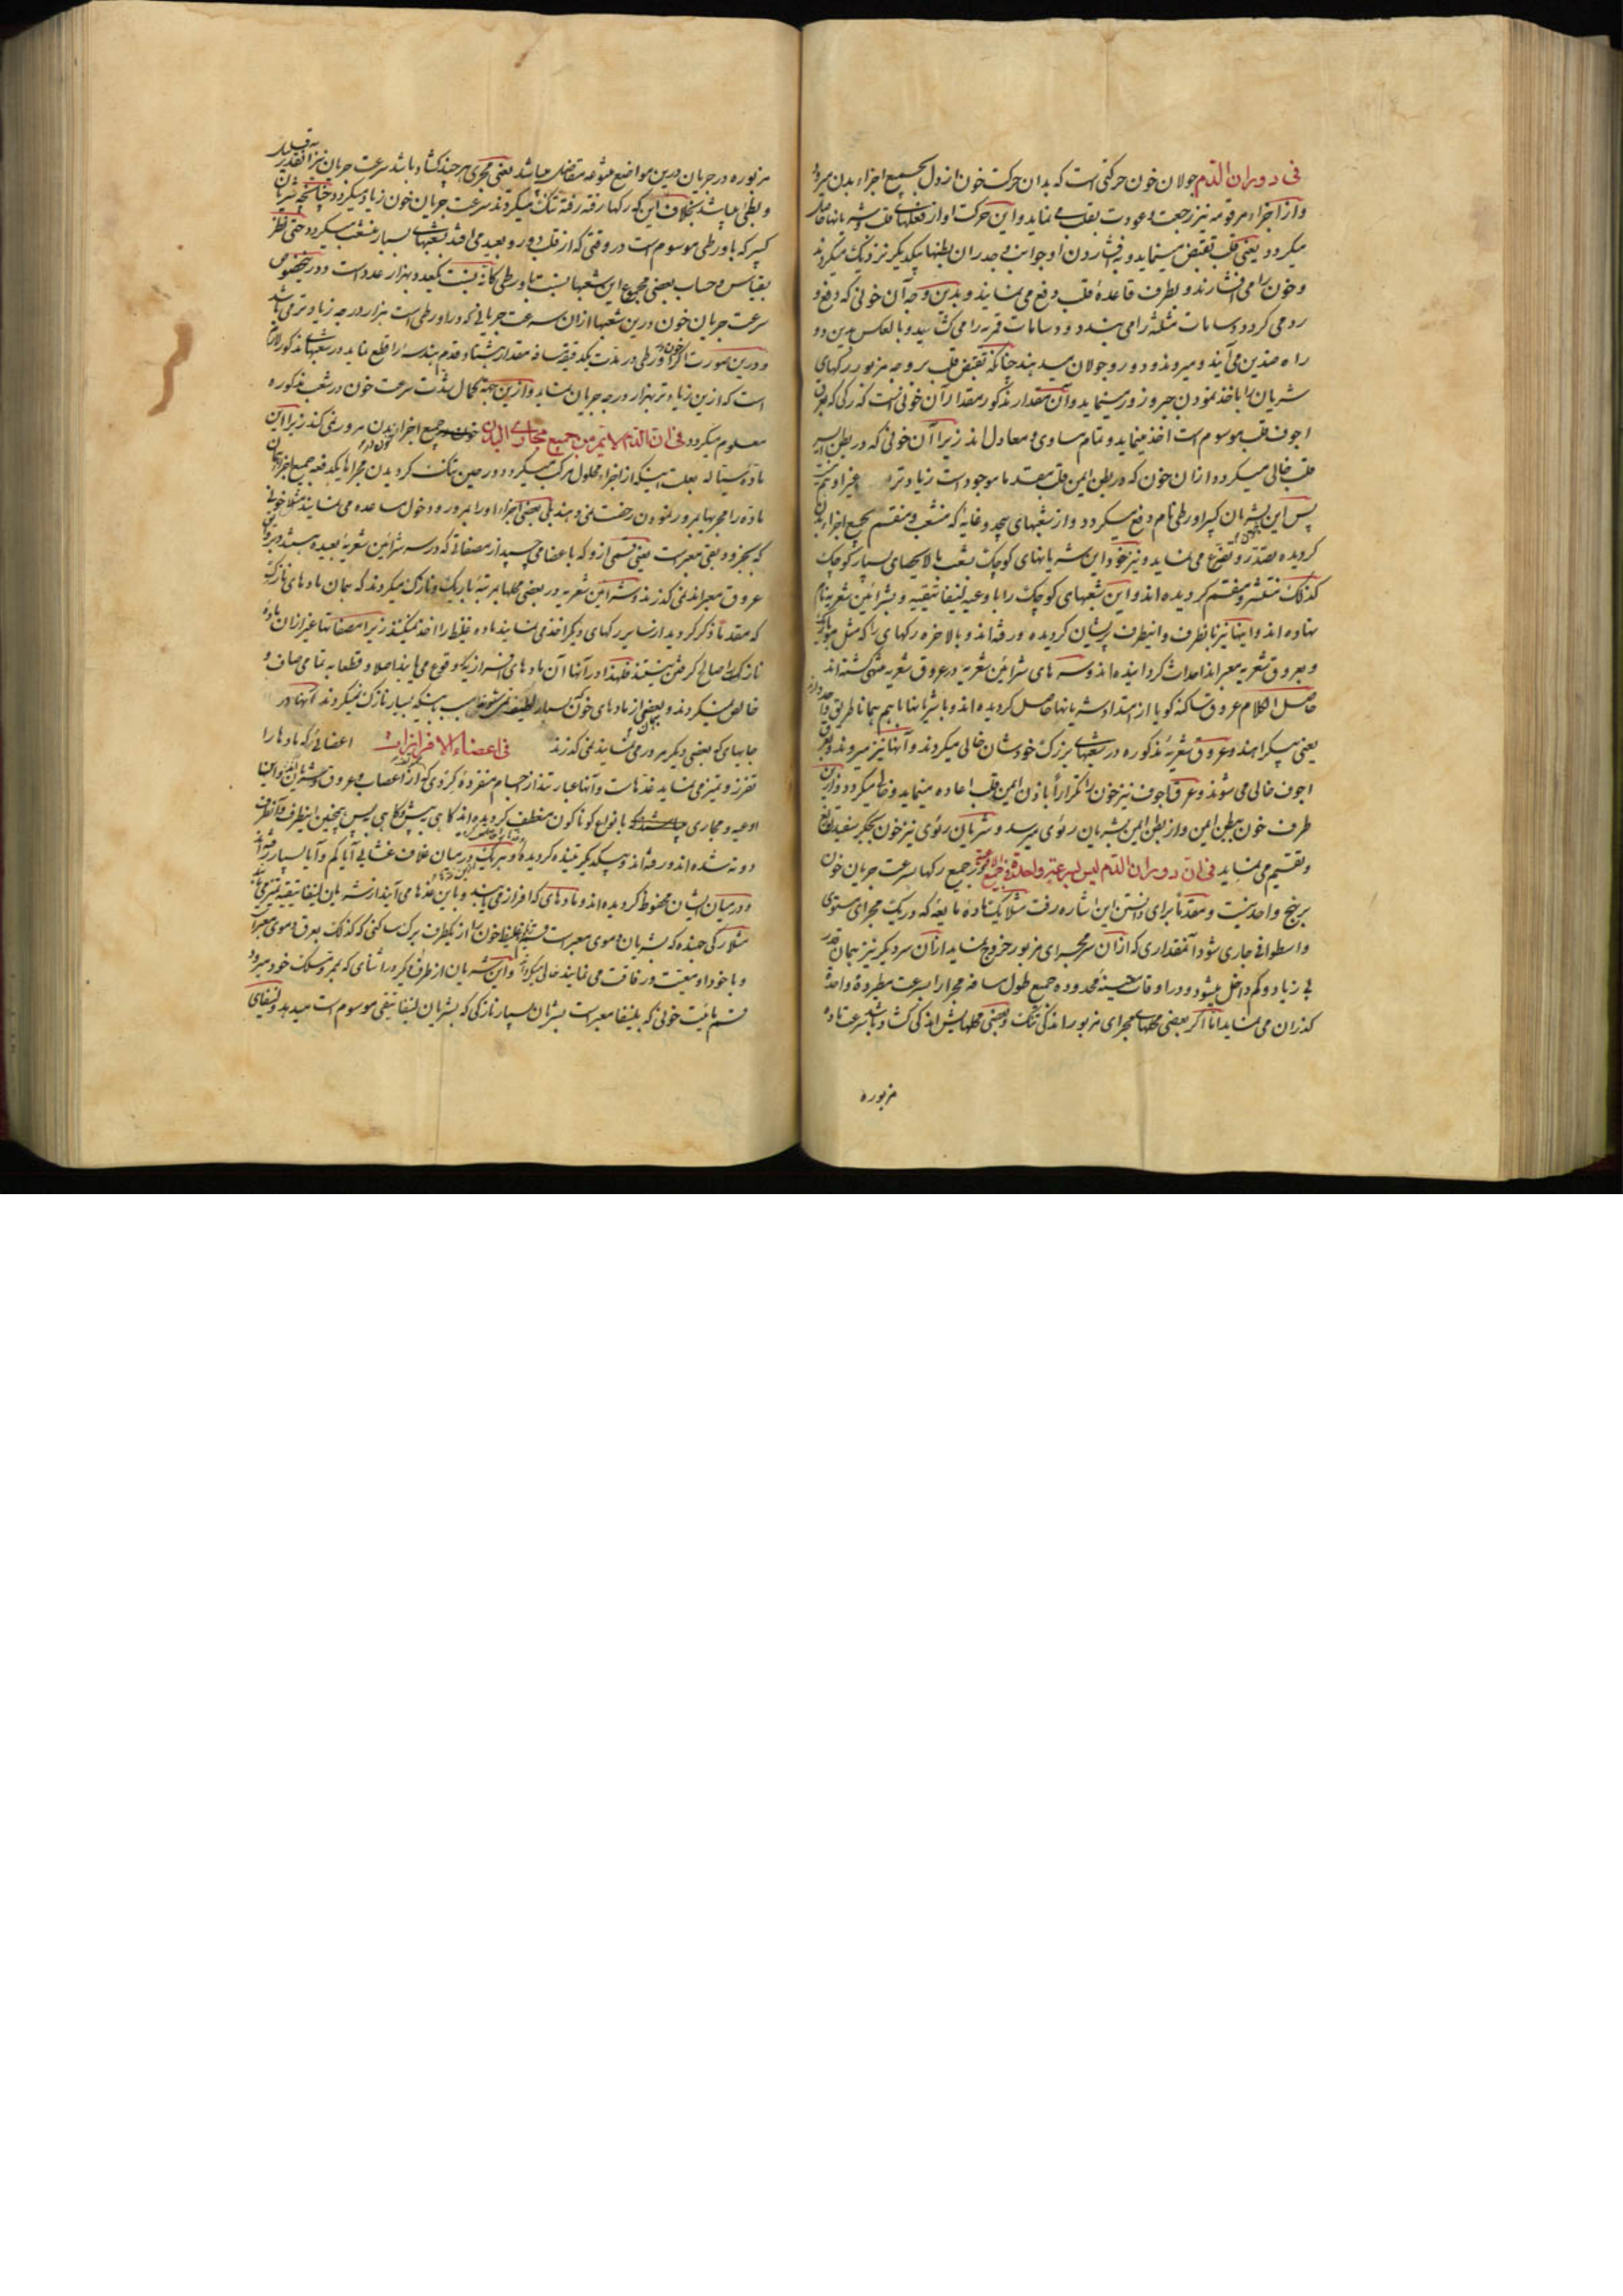 فی دوران الدم جولان خون حرکتی است که بدان حرکت خون از دل بجمیع اجزاء بدن میرود
واز اجزاء مرقومه نیز رجعت و عودت بقلب می نماید واین حرکت او از فعلهای قلب و شریانها حاصل
میکردد یعنی قلب تقبض مینماید و بفشاردن او جوانب و جدران بطنها بیکدیکر نزدیک میکردند
وخون را می افشارند و بطرف قاعدۀ قلب دفع می نمایند و بدین وجه آن خونی که دفع و
رد می کردد دسامات مثلثه را می بندد و دسامات قمریه را می کشاید و بالعکس بدین دو
راه ضدین می آیند و میروند و دور و جولان میدهند چنانکه تقبض قلب بر وجه مزبور رکهای
شریان را باخذ نمودن جبر و زور مینماید وآن مقدار مذکور مقدار آن خونی است که رکی که بعرق
اجوف قلب موسوم است اخذ مینماید و تمام مساوی و معادل اند زیرا آن خونی که در بطن ایسر
قلب خالی میکردد ازان خون که در بطن ایمن قلب مقدما موجود است زیادتر و غیر او هم نیست
پس این شریان کبیر اورطی نام دفع میکردد واز شعبهای بیحد و غایه که منشعب و منقسم بجمیع اجزاء بدن
کردیده تصدر و تفرع می نماید و نیز خود این شریانهای کوچک بشعب بالایجهای بسیار کوچک
کذلک منتشر و منقسم کردیده اند واین شعبهای کوچک را باوعیه لینفاتیقیه و بشرائین شعریه نام
نهاده اند واینها نیز بانطرف واینطرف پریشان کردیده و رفته اند و بالاخره رکهای را که مثل موی باریک
و بعروق شعریه معبر اند احداث کردانیده اند و سرهای شرائین شعریه در عروق شعریه منتهی کشته اند
حاصل الکلام عروق ساکنه کویا از امتداد شریانها حاصل کردیده اند و با شریانها باهم همانا طریق واحد دارند
یعنی پیکر اهند و عروق شعریۀ مذکوره در شعبهای بزرک خودشان خالی میکردند و آنها نیز میروند و بعرق
اجوف خالی می شوند و عرق اجوف نیز خون را تکرارا باذن ایمن قلب اعاده مینماید و خالی میکردد وازین
طرف خون ببطن ایمن واز بطن ایمن بشریان رئوی میرسد و شریان رئوی نیز خون بجکر سفید توزیع
و تقسیم می نماید فی ان دوران الدم لیس بسرعة واحدة فی جمیع العروق در جمیع رکها سرعت جریان خون
بر نهج واحد نیست و مقدما برای دانستن این اشاره رفت مثلا یک مادۀ مایعه که در یک مجرای مستوی
واسطوانی جاری شود آنمقداری که ازان سر مجرای مزبور خروج نماید ازان سر دیکر نیز همان قدر
بی زیاد و کم داخل میشود و در اوقات معینۀ محدوده جمیع طول مسافه مجرا را بسرعت مطردۀ واحده
کذران می نماید اما اکر بعضی محلهای مجرای مزبور اندکی تنک و بعضی محلهایش اندکی کشاد باشد سرعت مادۀ
مزبوره
مزبوره در جریان درین مواضع متنوعه متفاضل میباشد یعنی مجری هر چند کشاد باشد سرعت جریان نیز آنقدر قلیل
و بطی میباشد بخلاف این که رکها رفته رفته تنک میکردند سرعت جریان خون زیاد میکردد چنانچه شریان
کبیر که باورطی موسوم است در وقتی که از قلب دور و بعید می افتد بشعبهای بسیار منشعب میکردد حتی نظر
بقیاس و حساب بعضی مجموع این شعبها بنسبت باورطی کانه نسبت یکعدد بهزار عدد است و درینخصوص
سرعت جریان خون درین شعبها ازان سرعت جریانی که در اورطی است هزار درجه زیادتر می باشد
و درین صورت اکر خون در اورطی در مدت یکدقیقه مسافه مقدار هشتاد قدم هندسه را قطع نماید در شعبهای مذکور لازم
است که ازین زیادتر بهزار درجه جریان نماید وازین جهة کمال شدت سرعت خون در شعب مذکوره
معلوم میکردد فی ان الدم لا یمر من جمیع مجاری البدن خون در جمیع اجزاء بدن مرور نمی کند زیرا این
مادۀ سیاله بعلت اینکه از اجزاء محلول مرکب میکردد در حین تنک کردیدن مجراها یکدفعه جمیع اجزاء همان
ماده را مجریها بمرور نمودن رخصت نمی دهند بلی بعضی اجزاء او را بمرور و دخول مساعده می نمایند مثلا خونی
عروق معبر اند نمی کذرند و شرائین شعریه در بعضی محلها بمرتبۀ باریک و نازک میکردند که همان مادهای نازک
که مقدما ذکر کردید از سایر رکهای دیکر اخذ می نمایند ماده غلیظ را اخذ نمیکنند زیرا مصفاتها غیر ازان مادۀ
نازک را صالح کرفتن نیستند فلهذا در آنها آن مادهای افراز یک وقوع می یابند اصلا و قطعا به تمامی صاف و
خالص نمیکردند و بعضی از مادهای خون که بسیار لطیف بسبب اینکه بسیار نازک نمیکردند آنها در
جاهای که بعضی دیکر مرور می نمایند نمی کذرند فی اعضاء الافرازیات اعضائی که مادها را
تفرز و تمیز می نماید غدهاست و آنها عبارتند از اجسام منفردۀ کروی که از اعصاب و عروق و شرائین واین
اوعیه و مجاری بانواع کوناکون منعطف کردیده اند کاهی پیش و کاهی پس همچنین اینطرف و آنطرف
دوته شده اند و رفته اند و بیکدیکر تنیده کردیده و هر یک در میان غلاف غشائی آیا کم و آیا بسیار رفته اند
و در میان ایشان محفوظ کردیده اند و مادهای که افراز می یابند و باین غدها می آیند از شریان لینفاتیقیه تمیز می یابند
مثلا رکی جهنده که بشریان و موی معبر است قسم غلیظ خون را از یکطرف برک ساکنی که کذلک بعرق و موی معبر است
و با خود او معیت و رفاقت می نمایند خالی میکرداند واین شریان از طرف دیکر در اثنای که بمر و مسلک خود میرود
قسم مائیت خونی که بلینفا معبر است بشریان بسیار نازکی که بشریان لینفاتیقی موسوم است میدهد و لینفای